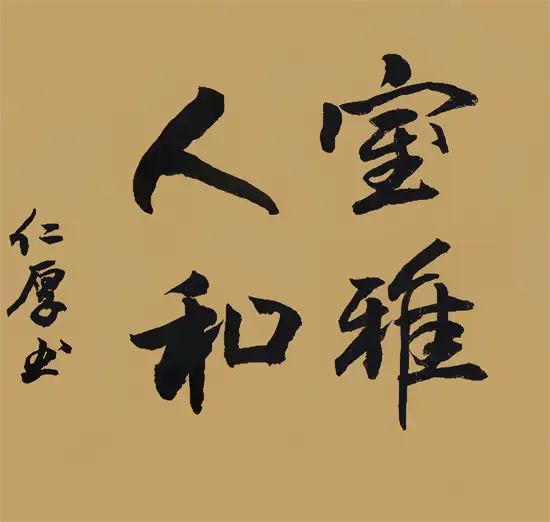 室雅
人和
仁厚书